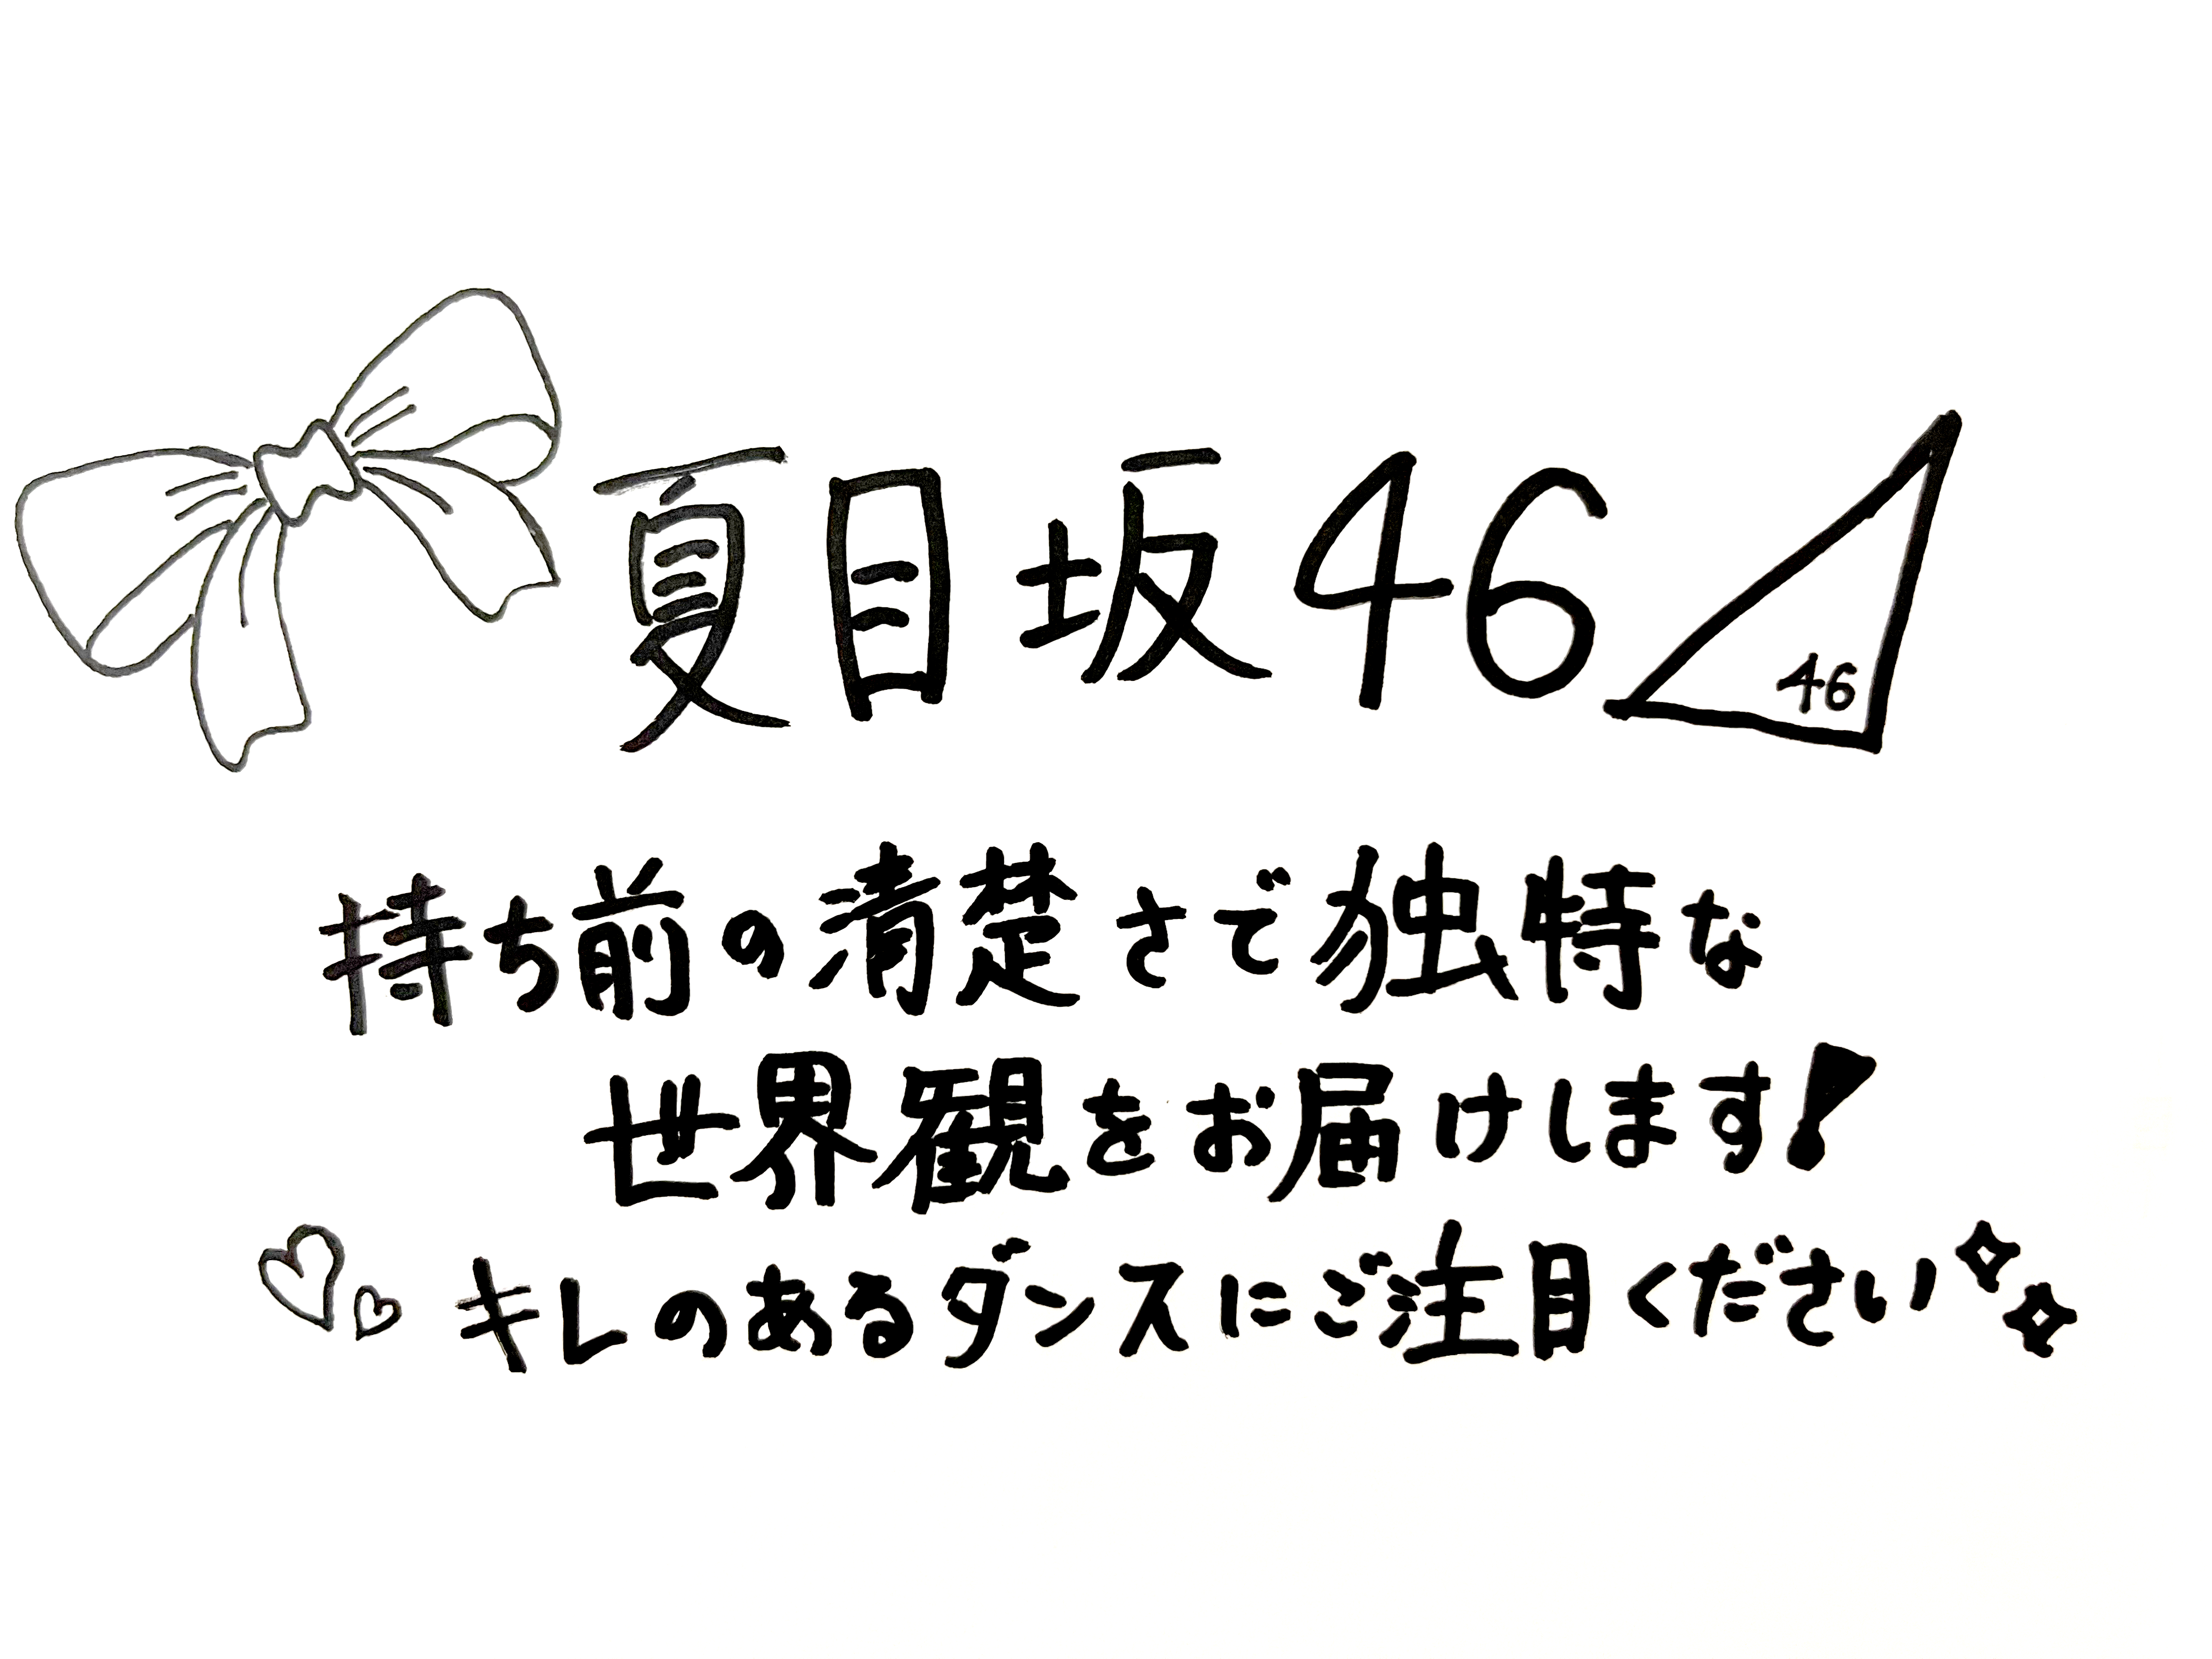 夏目坂46
46
持ち前の清楚さで独特な
世界観をお届けします!
キレのあるダンスにご注目ください